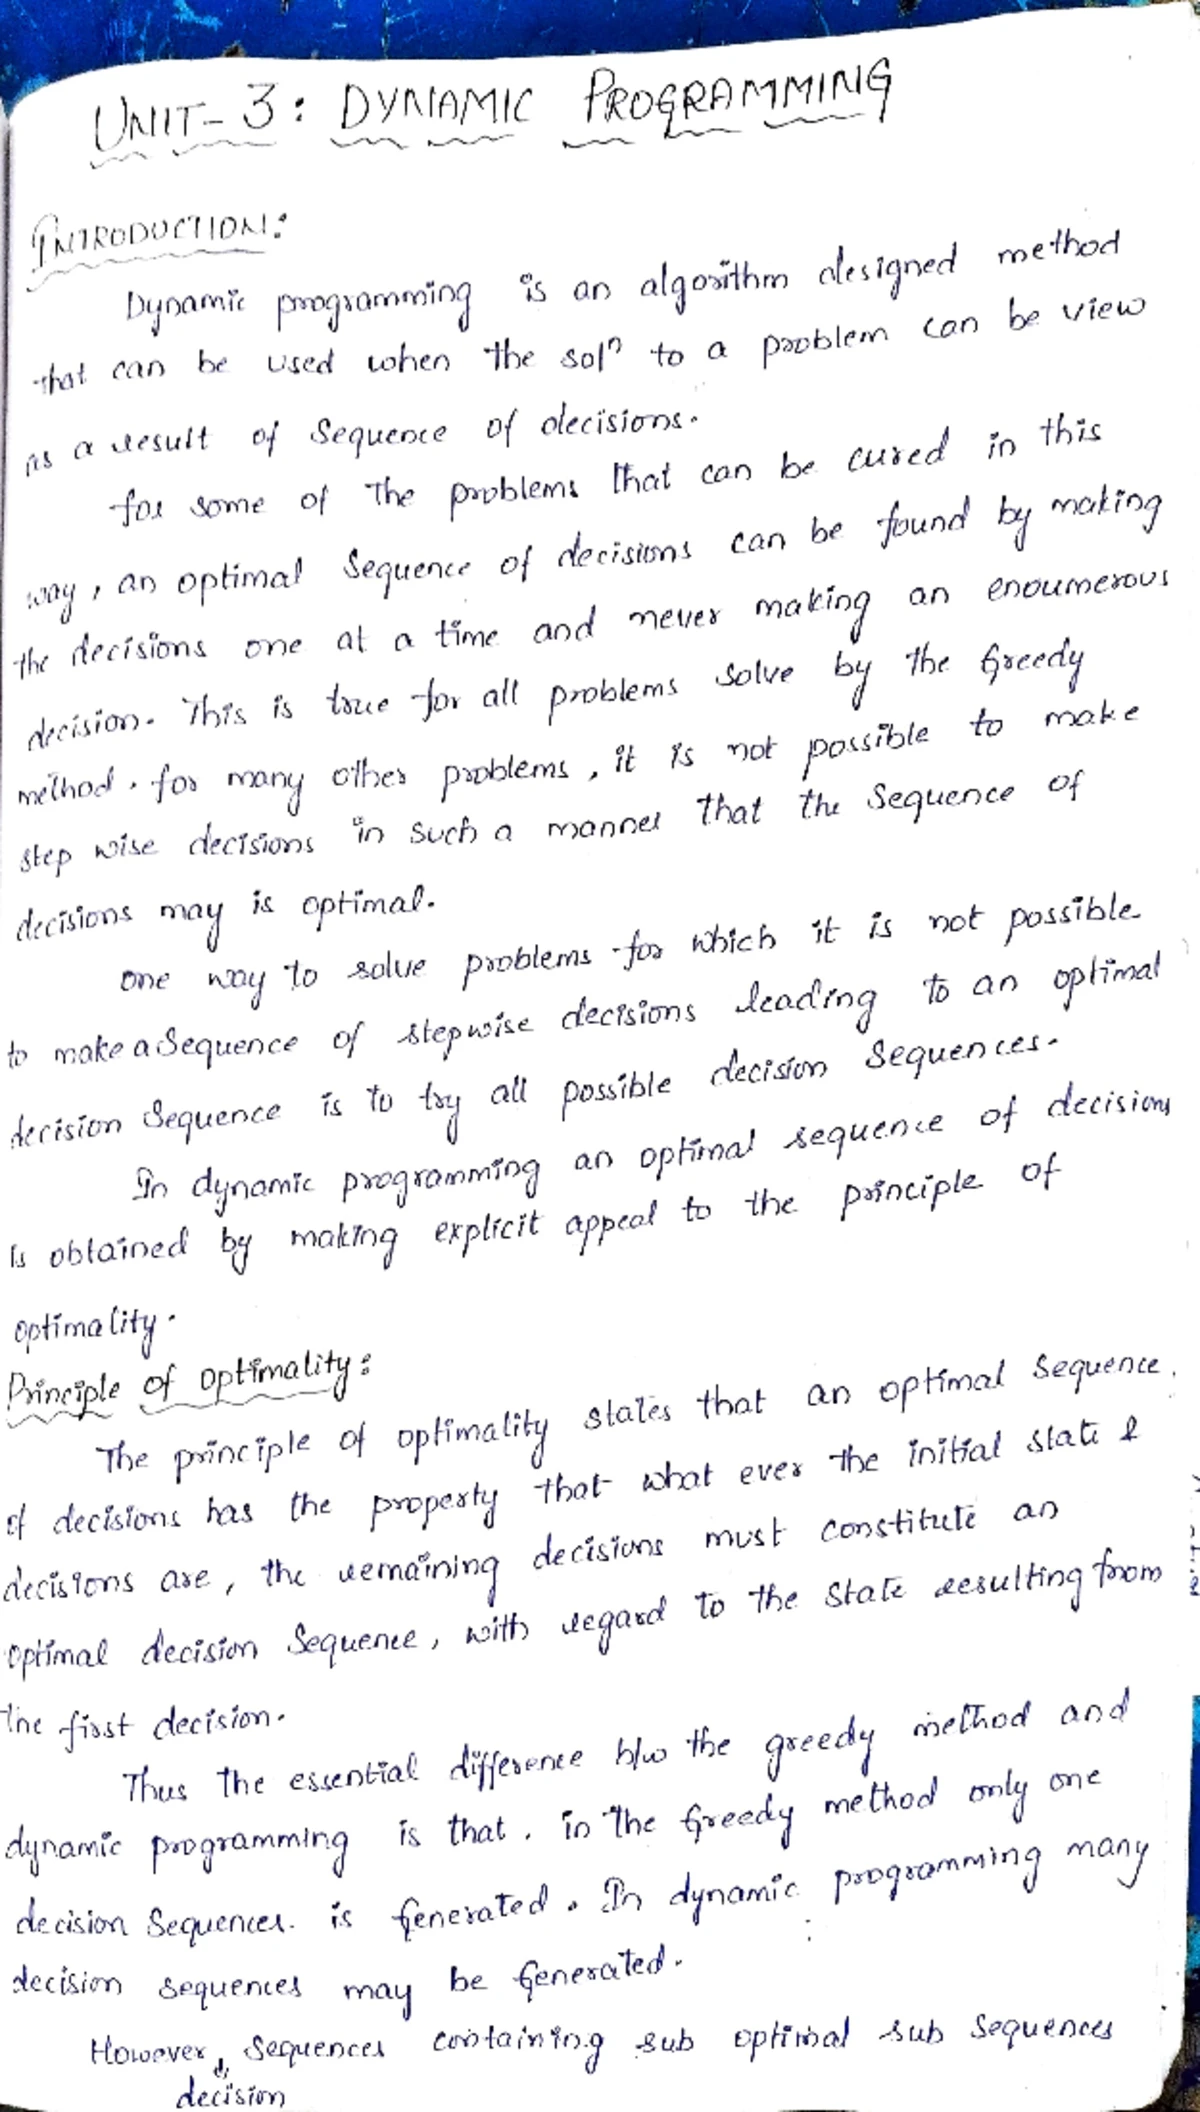 UNIT-3: DYNAMIC PROGRAMMING
INTRODUCTION:
Dynamic programming is an algorithm designed method
that can be used when the solⁿ to a problem can be view
as a result of Sequence of decisions.
for some of the problems that can be cured in this
way, an optimal Sequence of decisions can be found by making
the decisions one at a time and never making an enoumerous
decision. This is true for all problems solve by the Greedy
method. for many other problems, it is not possible to make
step wise decisions in such a manner that the Sequence of
decisions may is optimal.
one way to solve problems for which it is not possible
to make a Sequence of stepwise decisions leading to an optimal
decision Sequence is to try all possible decision Sequences.
In dynamic programming an optimal sequence of decisions
is obtained by making explicit appeal to the principle of
optimality.
Principle of optimality:
The principle of optimality states that an optimal Sequence
of decisions has the property that what ever the initial state &
decisions are, the remaining decisions must constitute an
optimal decision Sequence, with regard to the State resulting from
the first decision.
Thus the essential difference b/w the greedy method and
dynamic programming is that, in the Greedy method only one
decision Sequences. is Generated. In dynamic programming many
decision sequences may be Generated.
However, Sequences containing sub optimal sub Sequences
decision